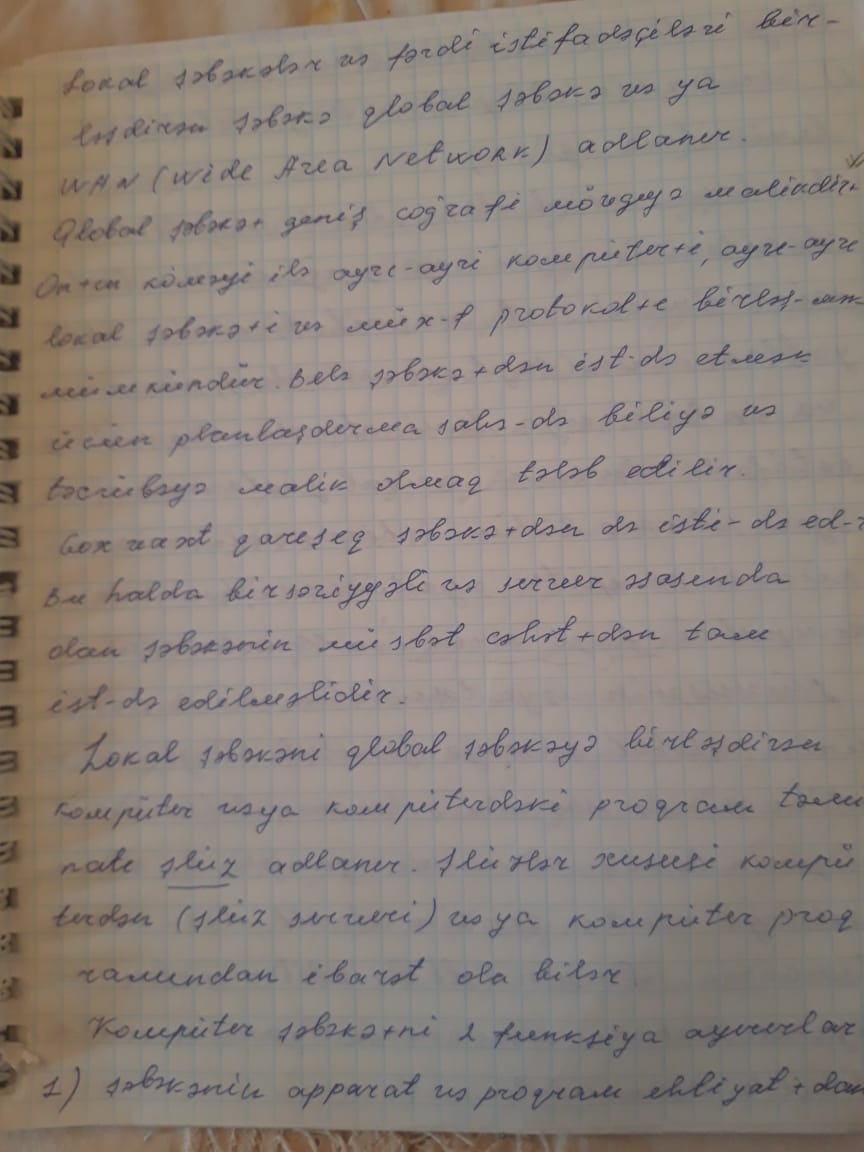 Lokal şəbəkələr və fərdi istifadəçiləri bir-
ləşdirən şəbəkə qlobal şəbəkə və ya
WAN (Wide Area Network) adlanır.
Qlobal şəbəkə+ geniş coğrafi mövqeyə malikdir+
On+ın köməyi ilə ayrı-ayrı kompüter+i, ayrı-ayrı
lokal şəbəkə+i və müx-f protokol+ı birləş-
mümkündür. Belə şəbəkə+dən ist-də etmək
üçün planlaşdırma sahə-də biliyə və
təcrübəyə malik olmaq tələb edilir.
Çox vaxt qarışıq şəbəkə+dən də isti-də ed-r
Bu halda birsəviyyəli və server əsasında
olan şəbəkənin müsbət cəhət+dən tam
ist-də edilməlidir.
Lokal şəbəkəni qlobal şəbəkəyə birləşdirən
kompüter və ya kompüterdəki proqram təmi
natı şlüz adlanır. Şlüzlər xususi kompü
terdən (şlüz serveri) və ya kompüter proq
ramından ibarət ola bilər.
Kompüter şəbəkə+ni 2 funksiya ayırırlar
1) şəbəkənin apparat və proqram ehtiyat+dan